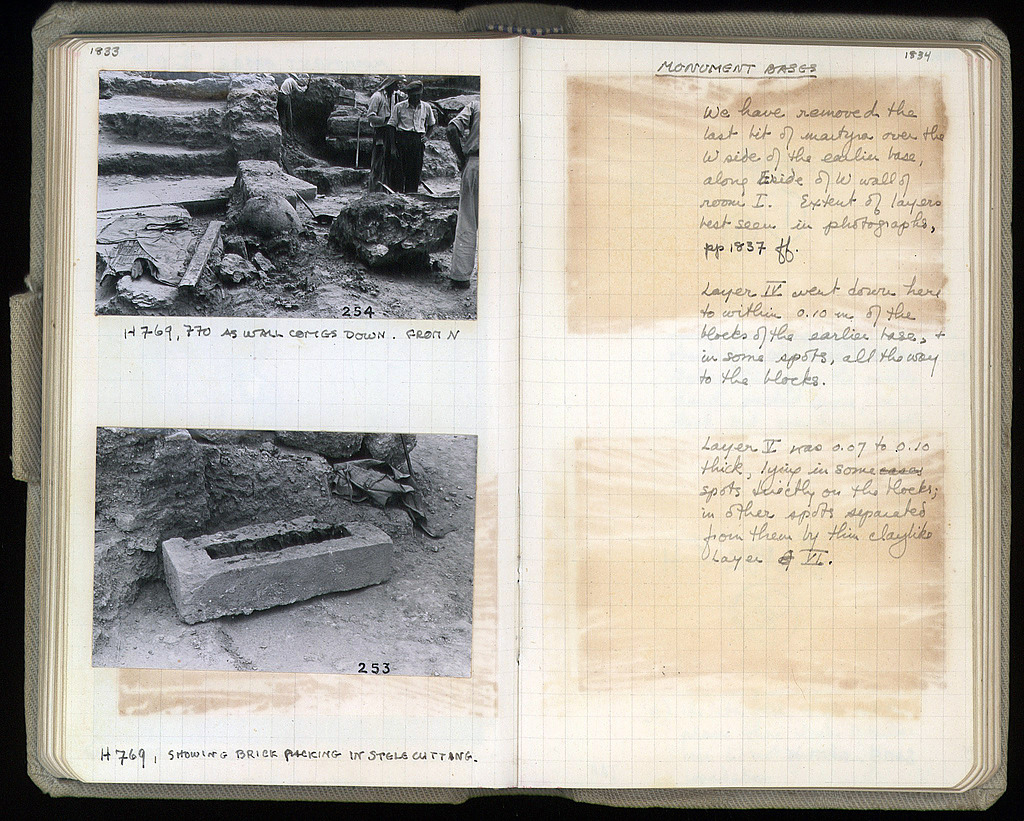 1833
254
H 769, 770 AS WALL COMES DOWN. FROM N
253
H 769, SHOWING BRICK PACKING IN STELE CUTTING.
1834
MONUMENT BASES
We have removed the
last bit of martyra over the
W side of the earlier base,
along E side of W wall of
room I. Extent of layers
best seen in photographs,
pp 1837 ff.
Layer IV went down here
to within 0.10 m. of the
blocks of the earlier base, +
in some spots, all the way
to the blocks.
Layer V was 0.07 to 0.10
thick, lying in some cases
spots directly on the blocks;
in other spots separated
from them by thin claylike
Layer VI.